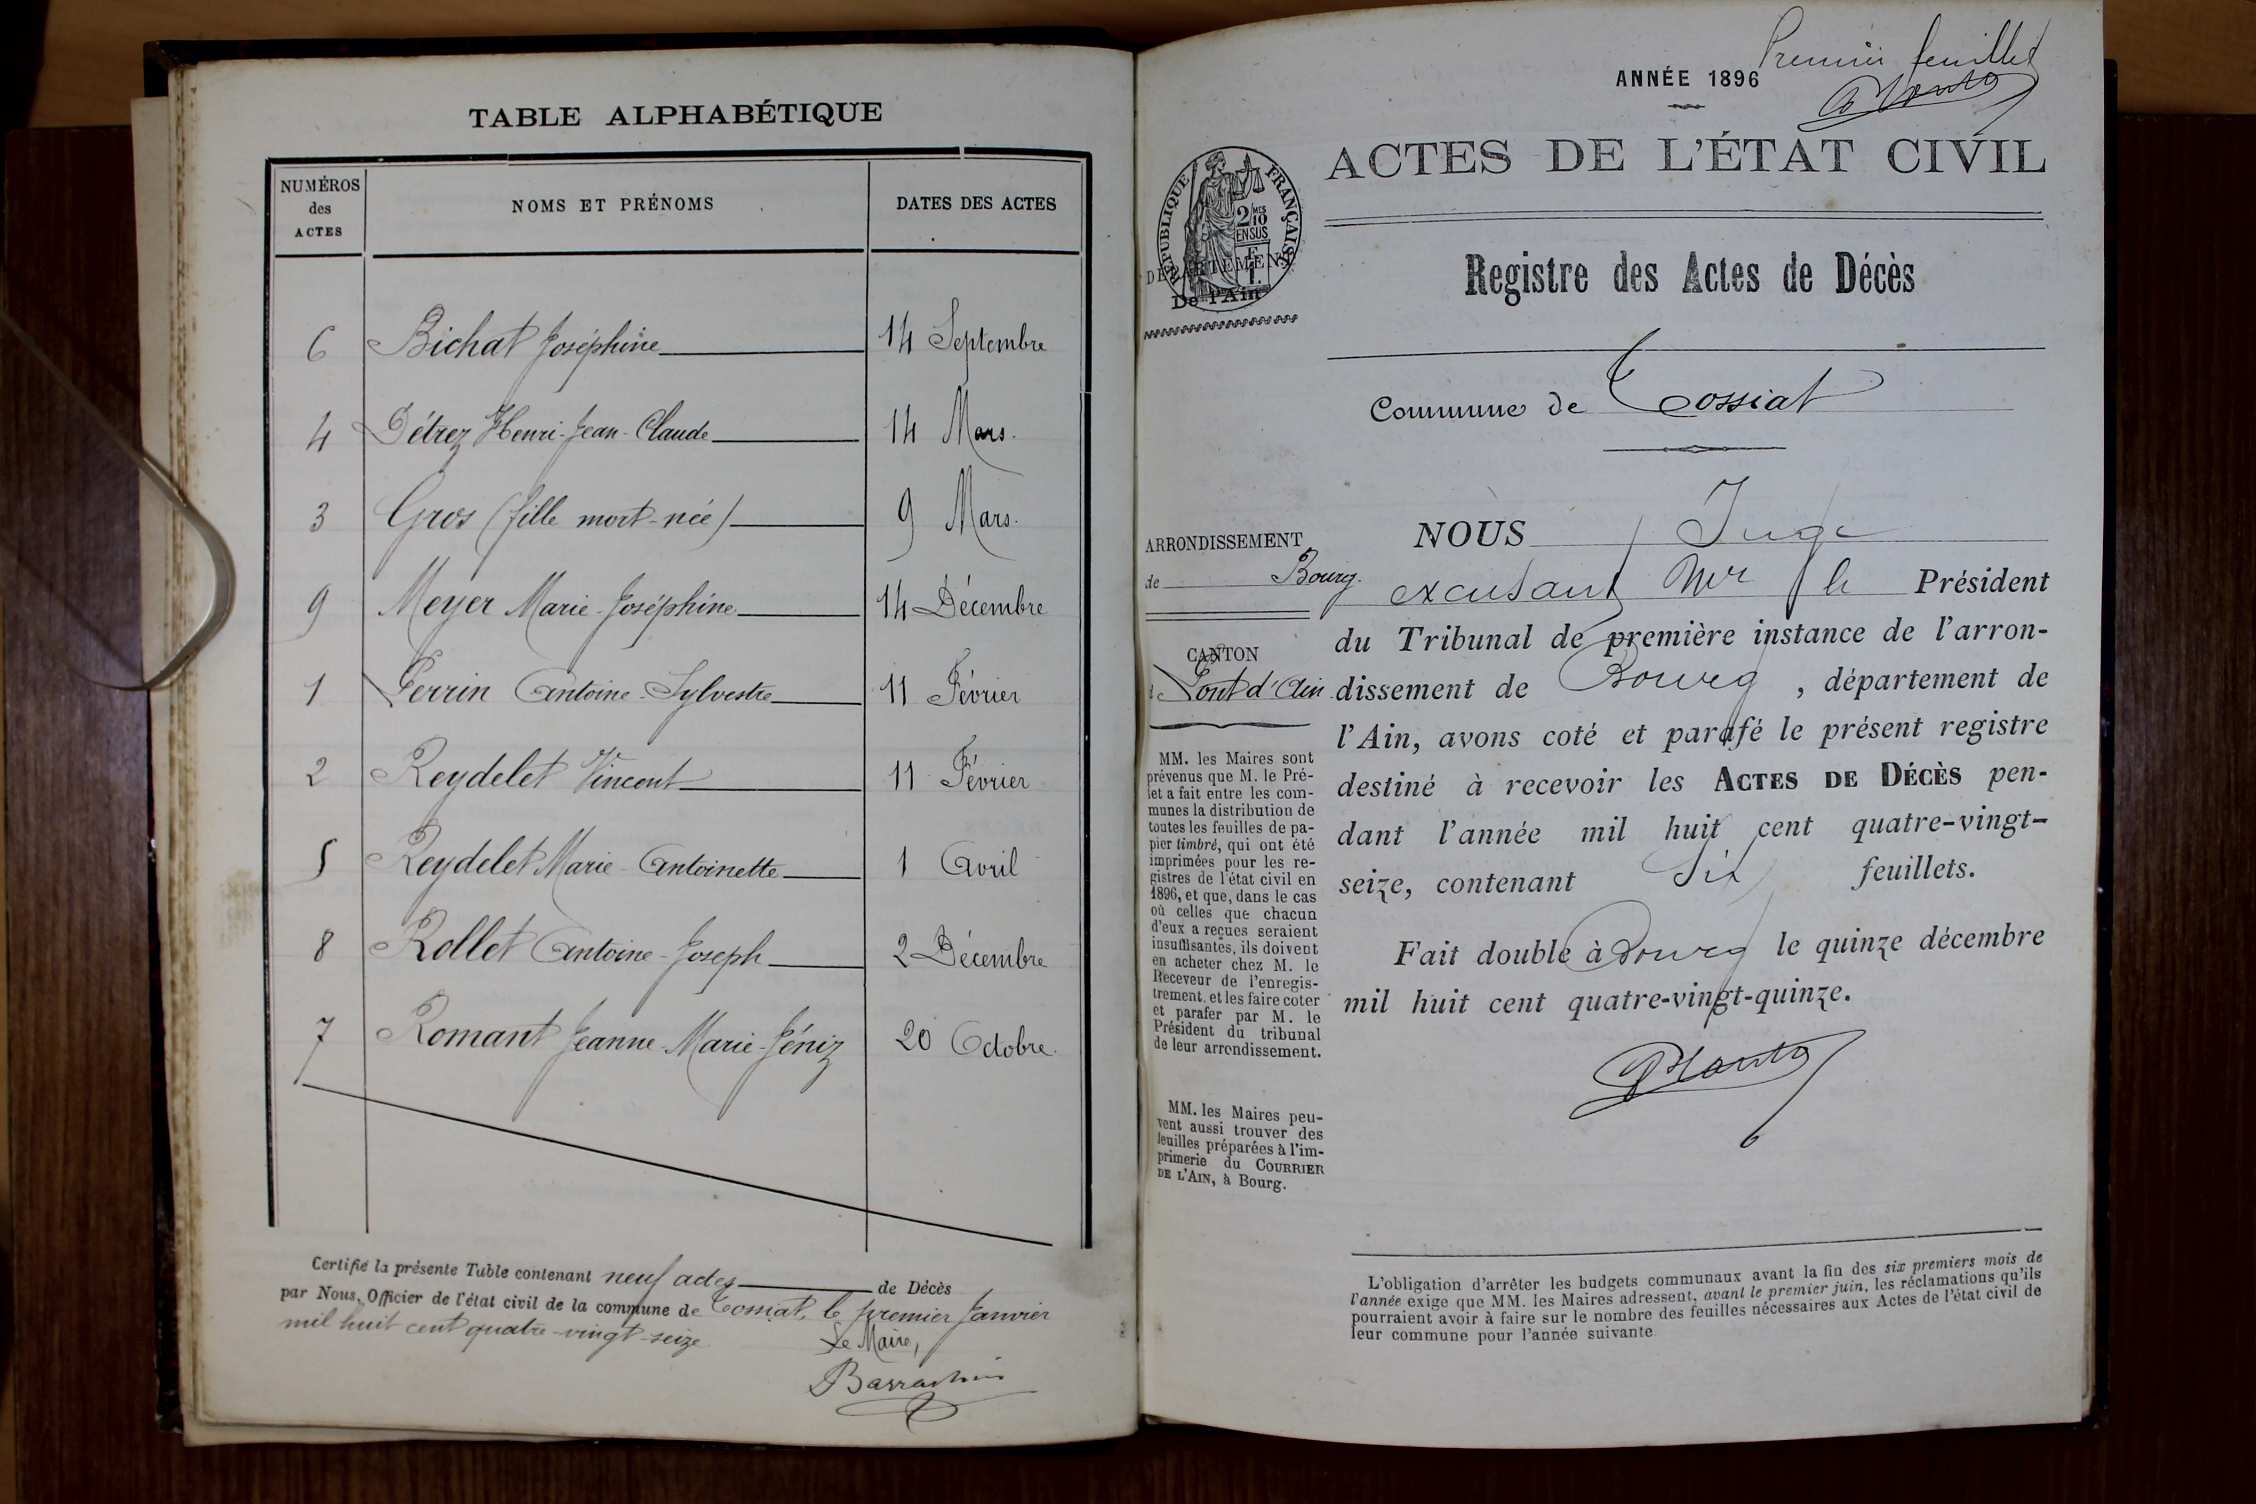 TABLE ALPHABÉTIQUE
NUMÉROS des ACTES NOMS ET PRÉNOMS DATES DES ACTES
6 Bichat Joséphine 14 Septembre
4 Détrez Henri-Jean-Claude 14 Mars.
3 Gros (fille mort-née) 9 Mars.
9 Meyer Marie-Joséphine 14 Décembre
1 Perrin Antoine-Sylvestre 11 Février
2 Reydelet Vincent 11 Février
5 Reydelet Marie-Antoinette 1 Avril
8 Rollet Antoine-Joseph 2 Décembre
7 Romant Jeanne-Marie-Féniz 20 Octobre.
Certifié la présente Table contenant neuf actes de Décès
par Nous, Officier de l'état civil de la commune de Tossiat, le premier Janvier
mil huit cent quatre-vingt-seize
Le Maire,
Premier feuillet
ANNÉE 1896
ACTES DE L'ÉTAT CIVIL
RÉPUBLIQUE FRANÇAISE
2 MES
10
EN SUS
DÉPARTEMENT
De l'Ain
Registre des Actes de Décès
Commune de Tossiat
ARRONDISSEMENT
de Bourg.
CANTON
de Pont d'Ain
MM. les Maires sont
prévenus que M. le Pré-
fet a fait entre les com-
munes la distribution de
toutes les feuilles de pa-
pier timbré, qui ont été
imprimées pour les re-
gistres de l'état civil en
1896, et que, dans le cas
où celles que chacun
d'eux a reçues seraient
insuffisantes, ils doivent
en acheter chez M. le
Receveur de l'enregis-
trement, et les faire coter
et parafer par M. le
Président du tribunal
de leur arrondissement.
MM. les Maires peu-
vent aussi trouver des
feuilles préparées à l'im-
primerie du COURRIER
DE L'AIN, à Bourg.
NOUS Juge
excusant Mr le Président
du Tribunal de première instance de l'arron-
dissement de Bourg, département de
l'Ain, avons coté et parafé le présent registre
destiné à recevoir les ACTES DE DÉCÈS pen-
dant l'année mil huit cent quatre-vingt-
seize, contenant Six feuillets.
Fait double à Bourg le quinze décembre
mil huit cent quatre-vingt-quinze.
L'obligation d'arrêter les budgets communaux avant la fin des six premiers mois de
l'année exige que MM. les Maires adressent, avant le premier juin, les réclamations qu'ils
pourraient avoir à faire sur le nombre des feuilles nécessaires aux Actes de l'état civil de
leur commune pour l'année suivante